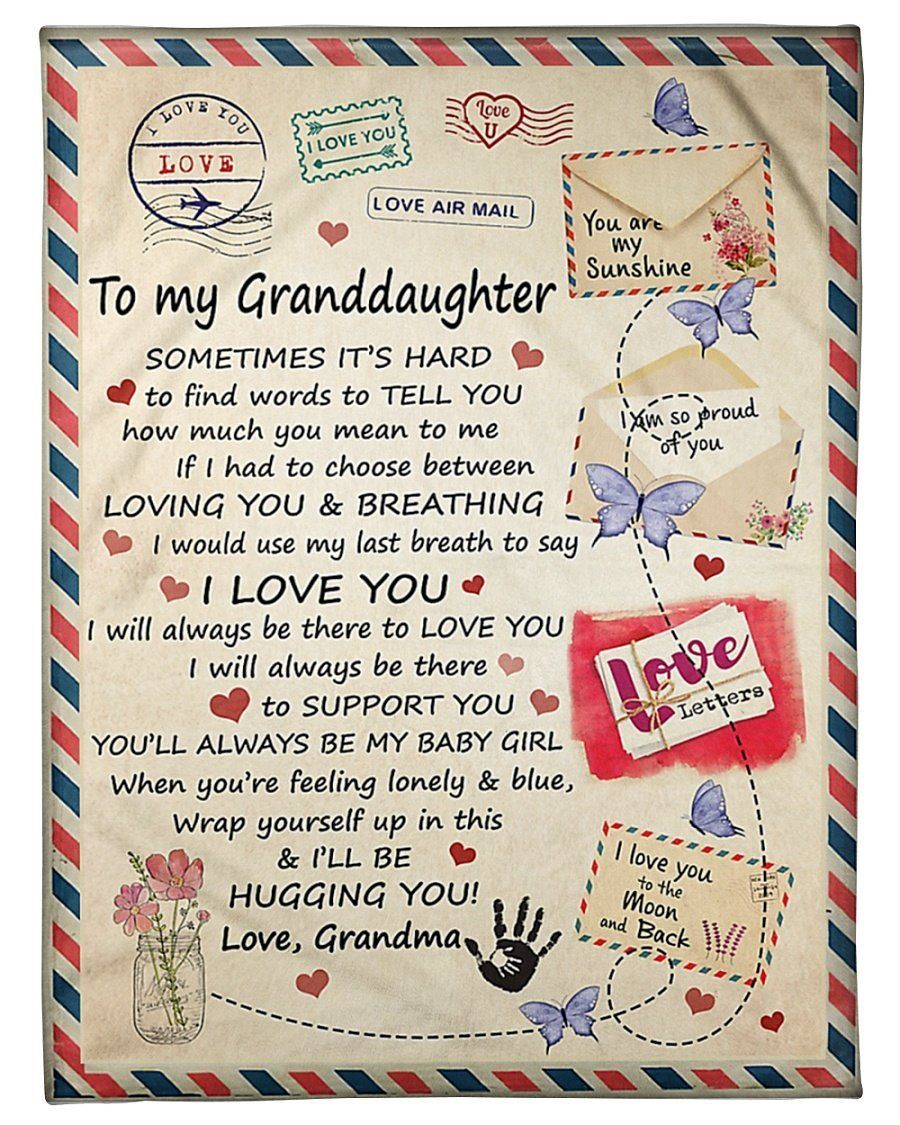 I LOVE YOU
LOVE
I LOVE YOU
Love
U
LOVE AIR MAIL
You are
my
Sunshine
To my Granddaughter
SOMETIMES IT'S HARD
to find words to TELL YOU
how much you mean to me
If I had to choose between
LOVING YOU & BREATHING
I would use my last breath to say
I LOVE YOU
I will always be there to LOVE YOU
I will always be there
to SUPPORT YOU
YOU'LL ALWAYS BE MY BABY GIRL
When you're feeling lonely & blue,
Wrap yourself up in this
& I'LL BE
HUGGING YOU!
Love, Grandma
I am so proud
of you
Love
Letters
I love you
to the
Moon
and Back